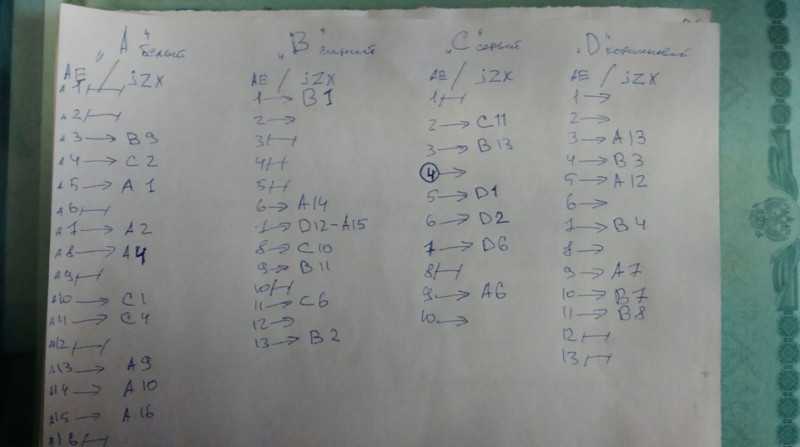 „A“ белый
AE / jZX
A1 ⊢⊣
A2 ⊢⊣
A3 → B9
A4 → C2
A5 → A1
A6 ⊢⊣
A7 → A2
A8 → A4
A9 ⊢⊣
A10 → C1
A11 → C4
A12 ⊢⊣
A13 → A9
A14 → A10
A15 → A16
A16 ⊢⊣
„B“ синий
AE / jZX
1 → B1
2 →
3 ⊢⊣
4 ⊢⊣
5 ⊢⊣
6 → A14
7 → D12-A15
8 → C10
9 → B11
10 ⊢⊣
11 → C6
12 →
13 → B2
„C“ серый
AE / jZX
1 ⊢⊣
2 → C11
3 → B13
4 →
5 → D1
6 → D2
7 → D6
8 ⊢⊣
9 → A6
10 →
„D“ коричневый
AE / jZX
1 →
2 →
3 → A13
4 → B3
5 → A12
6 →
7 → B4
8 →
9 → A7
10 → B7
11 → B8
12 ⊢⊣
13 ⊢⊣